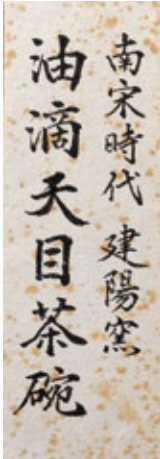 南宋時代 建陽窯
油滴天目茶碗